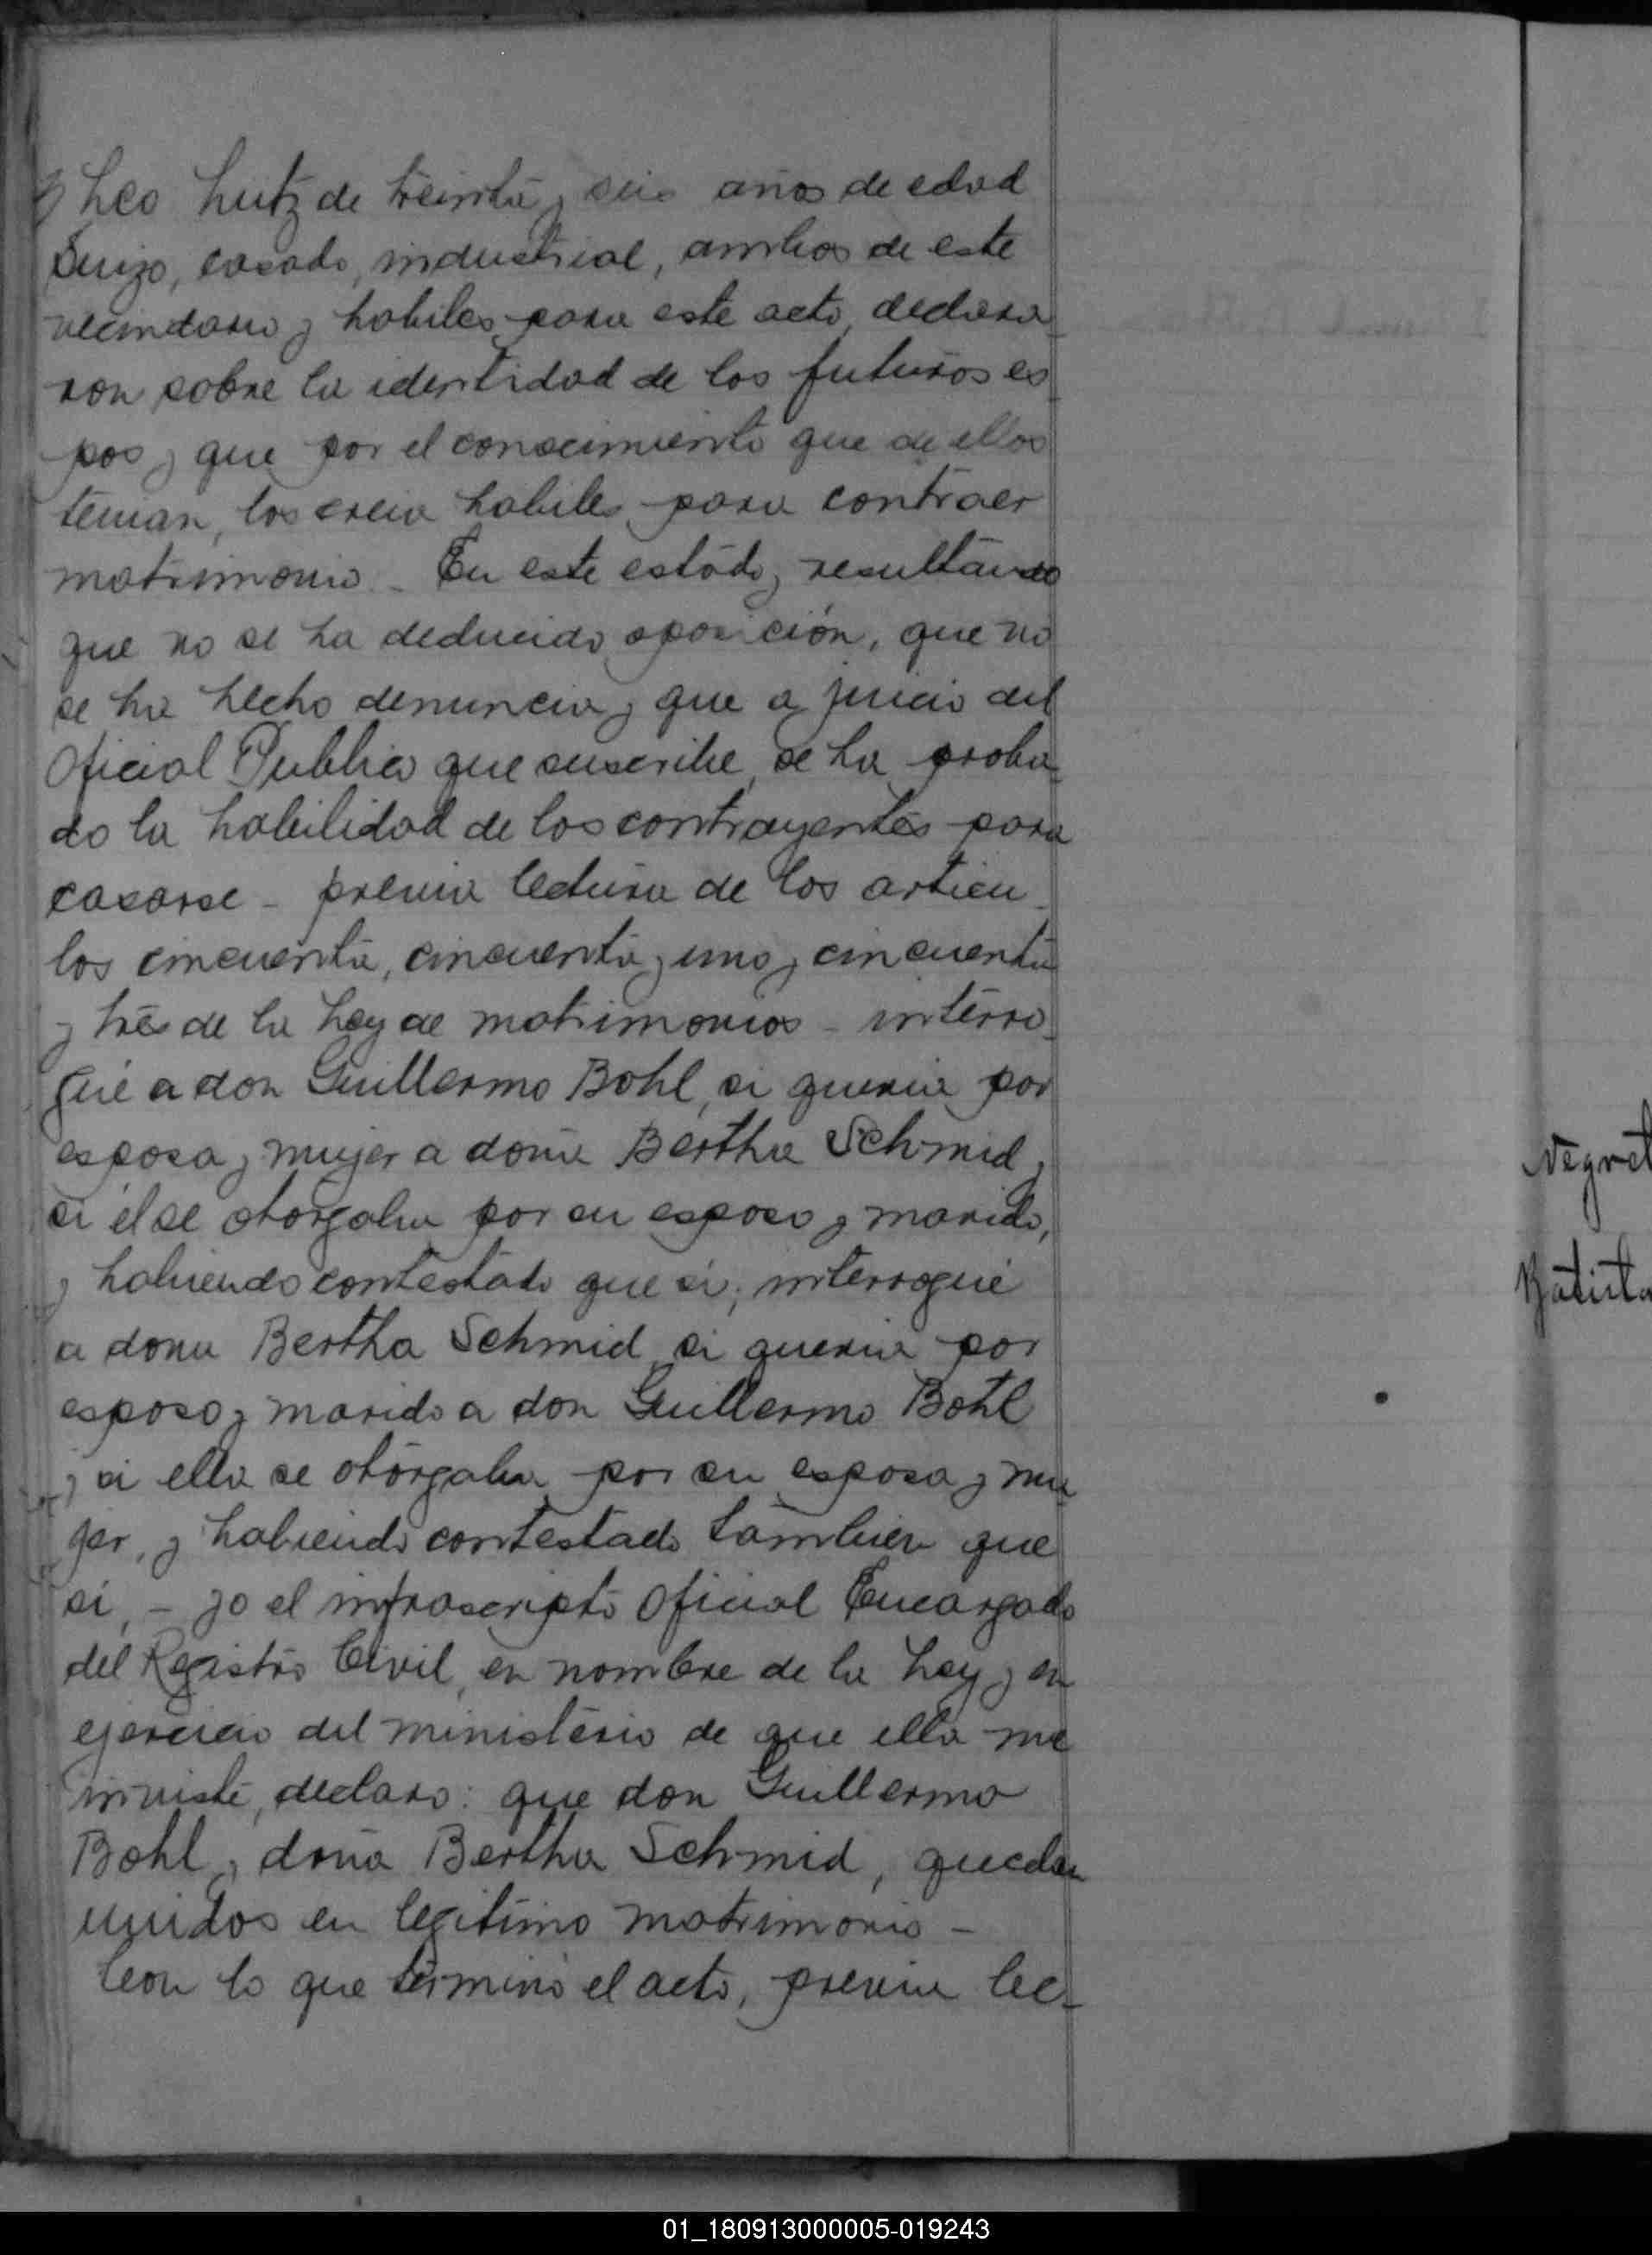 y Leo Lutz de treinta y seis años de edad
Suizo, casado, industrial, ambos de este
vecindario y habiles para este acto, declara_
ron sobre la identidad de los futuros es_
pos y que por el conocimiento que de ellos
tenian, los creia habiles para contraer
matrimonio. - En este estado y resultando
que no se ha deducido oposición, que no
se ha hecho denuncia y que a juicio del
Oficial Publico que suscribe, se ha proba_
do la habilidad de los contrayentes para
casarse - previa lectura de los articu_
los cincuenta, cincuenta y uno y cincuenta
y tres de la Ley de matrimonios - interro_
gué a don Guillermo Bohl, si queria por
esposa y mujer a doña Bertha Schmid y
si él se otorgaba por su esposo y marido,
y habiendo contestado que si; interrogué
a dona Bertha Schmid si queria por
esposo y marido a don Guillermo Bohl
y si ella se otorgaba por su esposa y mu_
ger, y habiendo contestado tambien que
si, - yo el infrascripto Oficial Encargado
del Registro Civil, en nombre de la Ley y en
ejercicio del ministerio de que ella me
inviste, declaro: que don Guillermo
Bohl y doña Bertha Schmid, quedan
unidos en legitimo matrimonio -
Con lo que terminó el acto, previa lec_
Negret
Batista
01_180913000005-019243